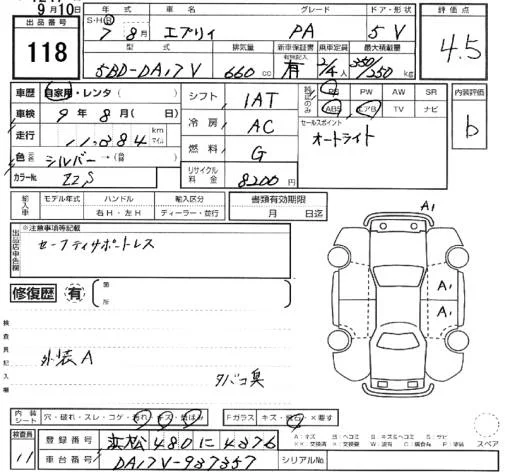 9月10日
出品番号
118
S・H・Ⓡ
年式
車名
グレード
ドア・形
7 8月
エブリィ
PA
5 V
型式
排気量
新車保証書
有効記入
乗車定員
最大積載量
5BD-DA17V
660 cc
有
2/4人
350/250 kg
評価点
4.5
車歴
自家用・レンタ( )
シフト
IAT
PS
PW
AW
SR
内装評価
b
車検
9年8月( 日)
冷房
AC
ABS
エアB
TV
ナビ
走行
km
マイル
セールスポイント
オートライト
色
シルバー→( )
燃料
G
カラーNo.
ZZS
リサイクル料金
8200円
輸入車
モデル年式
ハンドル
輸入区分
書類有効期限
右H・左H
ディーラー・並行
月 日迄
出品店申告欄
※注意事項等記載
セーフティサポートレス
修復歴
有
箇所
A1
A1
A1
検査員記入欄
外装A
タバコ臭
内装シート
穴・破れ・スレ・コゲ・汚れ・キズ・
Fガラス
キズ・飛石・×要す
検査員
11
登録番号
浜松 480 に 4376
車台番号
DA17V-937357
シリアルNo.
スペア